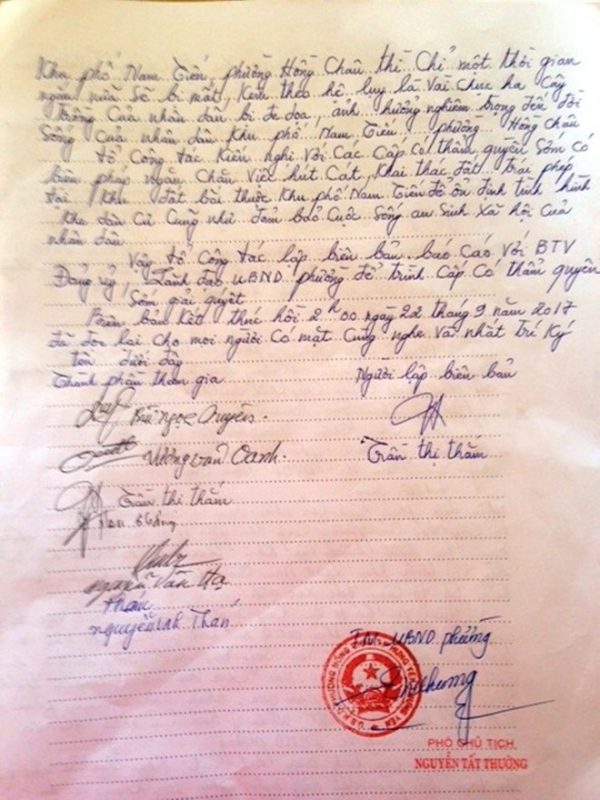 Khu phố Nam Tiến, phường Hồng Châu thì chỉ một thời gian
ngắn nữa sẽ bị mất, kéo theo hệ lụy là vài chục ha cây
trồng của nhân dân bị đe dọa, ảnh hưởng nghiêm trọng đến đời
sống của nhân dân khu phố Nam Tiến, phường Hồng Châu
Tổ công tác kiến nghị với các cấp có thẩm quyền sớm có
biện pháp ngăn chặn việc hút cát, khai thác đất trái phép
tại khu đất bãi thuộc khu phố Nam Tiến để ổn định tình hình
khu dân cư cũng như đảm bảo cuộc sống an sinh xã hội của
nhân dân
Vậy tổ công tác lập biên bản báo cáo với BTV
Đảng ủy, Lãnh đạo UBND phường để trình cấp có thẩm quyền
sớm giải quyết
Biên bản kết thúc hồi 2h00 ngày 22 tháng 9 năm 2017
đã đọc lại cho mọi người có mặt cùng nghe và nhất trí ký
tên dưới đây
Thành phần tham gia Người lập biên bản
Bùi Ngọc
Vương Văn Oanh. Trần thị thắm
Trần thị thắm
Nguyễn Văn Hạ
Nguyễn
TM. UBND phường
PHÓ CHỦ TỊCH
NGUYỄN TẤT THƯỜNG